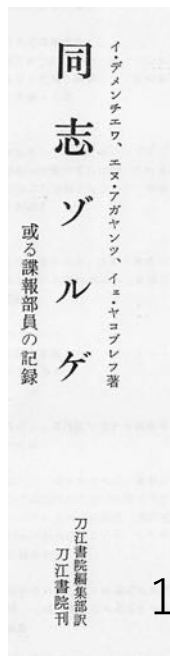 イ・デメンチエワ、エヌ・アガヤンツ、イェ・ヤコブレフ著
同志ゾルゲ
或る諜報部員の記録
刀江書院編集部訳
刀江書院刊
1